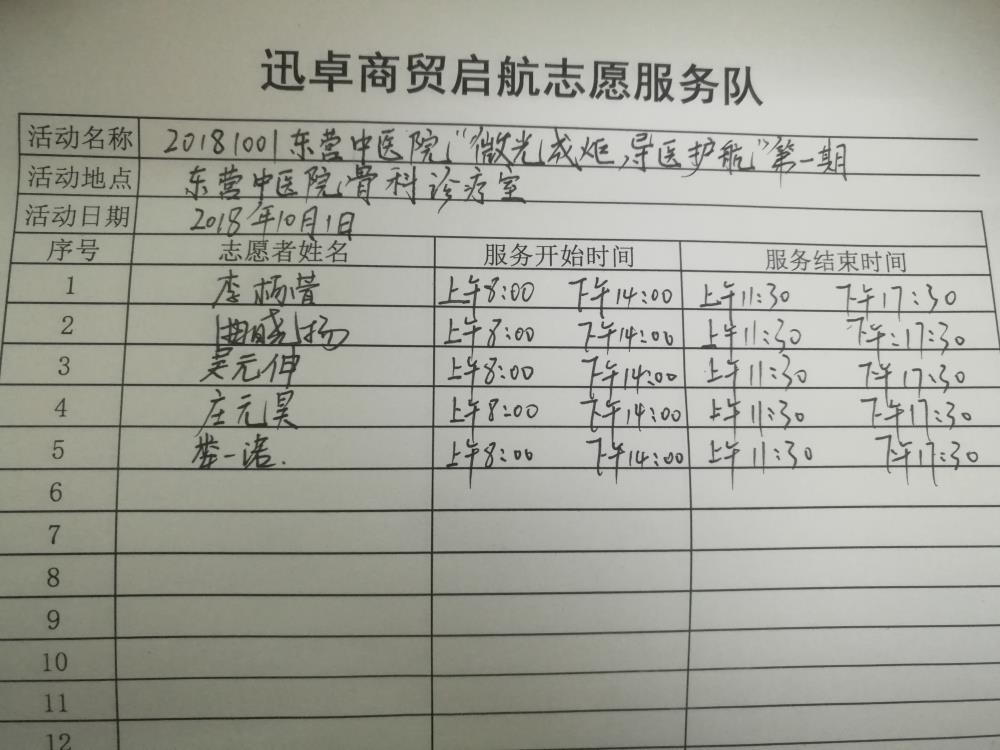 迅卓商贸启航志愿服务队
活动名称 20181001东营中医院"微光成炬,导医护航"第一期
活动地点 东营中医院骨科诊疗室
活动日期 2018年10月1日
序号 志愿者姓名 服务开始时间 服务结束时间
1 李杨 上午8:00 下午14:00 上午11:30 下午17:30
2 曲晓扬 上午8:00 下午14:00 上午11:30 下午:17:30
3 吴元伸 上午8:00 下午14:00 上午11:30 下午17:30
4 庄元昊 上午8:00 下午14:00 上午11:30 下午17:30
5 一诺. 上午8:00 下午14:00 上午11:30 下午17:30
6
7
8
9
10
11
12